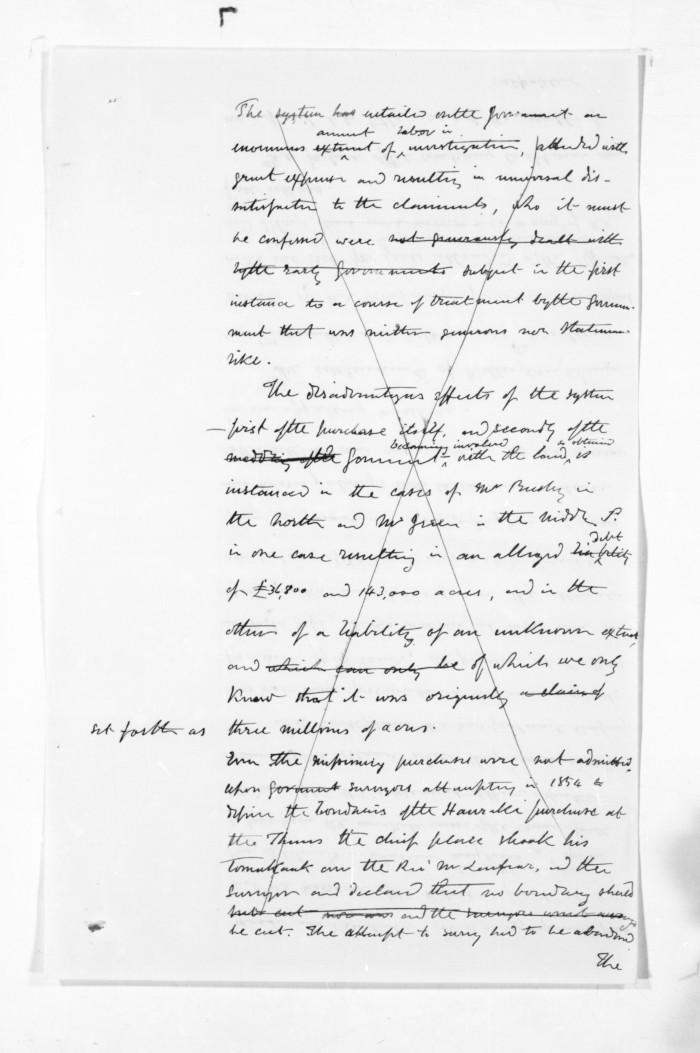 The system has entailed on the Government an
amount labor in
enormous extent of investigation, attended with
great expense and resulting in universal dis-
satisfaction to the claimants, who it must
be confessed were not generously dealt with
by the early Governments subject in the first
instance to a course of treatment by the Govern-
ment that was neither generous nor statesman-
like.
The disadvantageous effects of the system
– first of the purchase itself, and secondly of the
becoming involved so obtained
meddling of the Government with the land, is
instanced in the cases of Mr Busby in
the north and Mr Green in the Middle I.
debt
in one case resulting in an alleged liability
of £36,800 and 143,000 acres, and in the
other of a liability of an unknown extent,
and which can only be of which we only
know that it was originally a claim of
set forth as three millions of acres.
Even the missionary purchases were not admitted,
when Government surveyors attempting in 1854 to
define the boundaries of the Hauraki purchase at
the Thames the chief please shook his
tomahawk over the Rev Mr and the
Surveyor and declared that no boundary should
be cut now was and the surveyors would
be cut. The attempt to survey had to be abandoned.
The